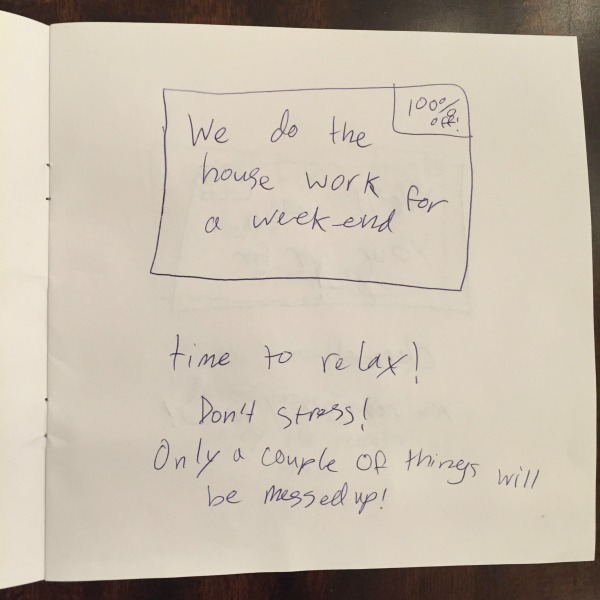 100%
off!
We do the
house work for
a week-end
time to relax!
Don't stress!
Only a couple of things will
be messed up!